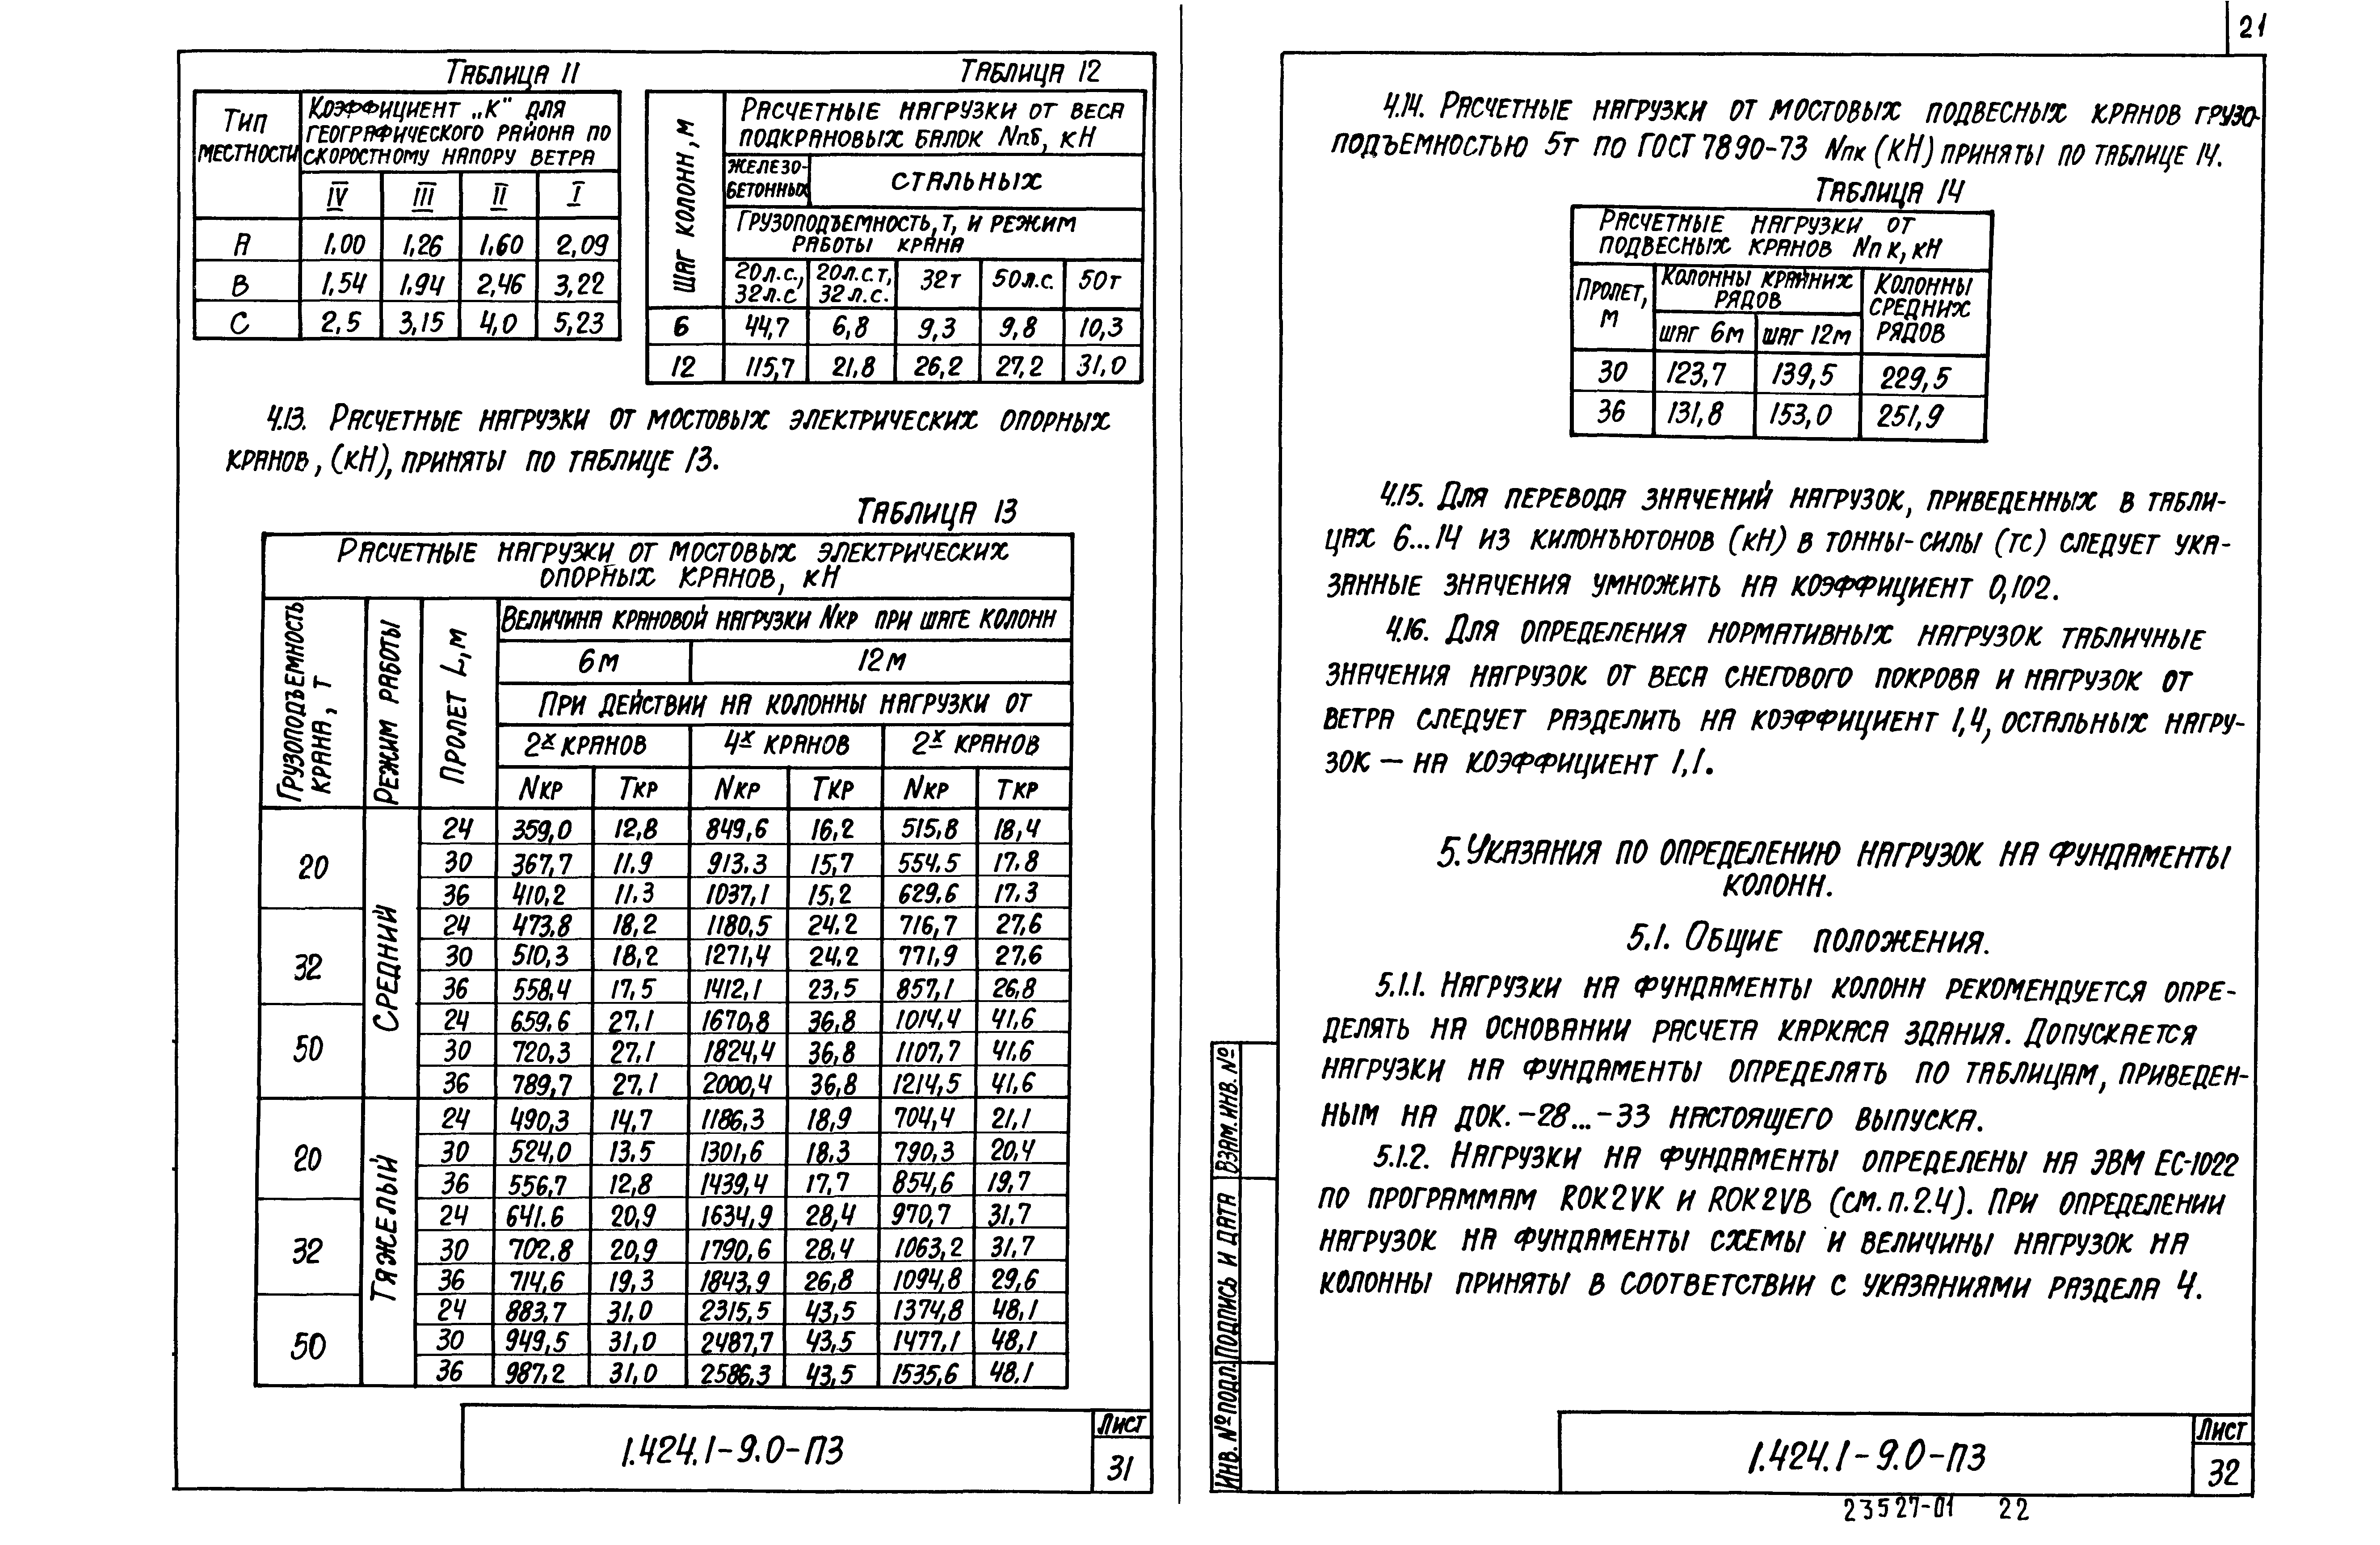 21
Таблица 11
Тип местности | Коэффициент „К" для географического района по скоростному напору ветра
IV | III | II | I
А | 1,00 | 1,26 | 1,60 | 2,09
В | 1,54 | 1,94 | 2,46 | 3,22
С | 2,5 | 3,15 | 4,0 | 5,23
Таблица 12
Шаг колонн, м | Расчетные нагрузки от веса подкрановых балок Nпб, кН
железобетонных | стальных
Грузоподъемность, т, и режим работы крана
20л.с., 32л.с | 20л.с.т, 32л.с. | 32т | 50л.с. | 50т
6 | 44,7 | 6,8 | 9,3 | 9,8 | 10,3
12 | 115,7 | 21,8 | 26,2 | 27,2 | 31,0
4.13. Расчетные нагрузки от мостовых электрических опорных
кранов, (кН), приняты по таблице 13.
Таблица 13
Расчетные нагрузки от мостовых электрических
опорных кранов, кН
Грузоподъемность крана, т | Режим работы | Пролет L, м | Величина крановой нагрузки Nкр при шаге колонн
6м | 12м
При действии на колонны нагрузки от
2х кранов | 4х кранов | 2х кранов
Nкр | Ткр | Nкр | Ткр | Nкр | Ткр
20 | Средний | 24 | 359,0 | 12,8 | 849,6 | 16,2 | 515,8 | 18,4
30 | 367,7 | 11,9 | 913,3 | 15,7 | 554,5 | 17,8
36 | 410,2 | 11,3 | 1037,1 | 15,2 | 629,6 | 17,3
32 | 24 | 473,8 | 18,2 | 1180,5 | 24,2 | 716,7 | 27,6
30 | 510,3 | 18,2 | 1271,4 | 24,2 | 771,9 | 27,6
36 | 558,4 | 17,5 | 1412,1 | 23,5 | 857,1 | 26,8
50 | 24 | 659,6 | 27,1 | 1670,8 | 36,8 | 1014,4 | 41,6
30 | 720,3 | 27,1 | 1824,4 | 36,8 | 1107,7 | 41,6
36 | 789,7 | 27,1 | 2000,4 | 36,8 | 1214,5 | 41,6
20 | Тяжелый | 24 | 490,3 | 14,7 | 1186,3 | 18,9 | 704,4 | 21,1
30 | 524,0 | 13,5 | 1301,6 | 18,3 | 790,3 | 20,4
36 | 556,7 | 12,8 | 1439,4 | 17,7 | 854,6 | 19,7
32 | 24 | 641,6 | 20,9 | 1634,9 | 28,4 | 970,7 | 31,7
30 | 702,8 | 20,9 | 1790,6 | 28,4 | 1063,2 | 31,7
36 | 714,6 | 19,3 | 1843,9 | 26,8 | 1094,8 | 29,6
50 | 24 | 883,7 | 31,0 | 2315,5 | 43,5 | 1374,8 | 48,1
30 | 949,5 | 31,0 | 2487,7 | 43,5 | 1477,1 | 48,1
36 | 987,2 | 31,0 | 2586,3 | 43,5 | 1535,6 | 48,1
1.424.1-9.0-ПЗ
Лист
31
4.14. Расчетные нагрузки от мостовых подвесных кранов грузо-
подъемностью 5т по ГОСТ 7890-73 Nпк (кН) приняты по таблице 14.
Таблица 14
Расчетные нагрузки от
подвесных кранов Nпк, кН
Пролет, м | Колонны крайних рядов | Колонны средних рядов
шаг 6м | шаг 12м
30 | 123,7 | 139,5 | 229,5
36 | 131,8 | 153,0 | 251,9
4.15. Для перевода значений нагрузок, приведенных в табли-
цах 6...14 из килоньютонов (кН) в тонны-силы (тс) следует ука-
занные значения умножить на коэффициент 0,102.
4.16. Для определения нормативных нагрузок табличные
значения нагрузок от веса снегового покрова и нагрузок от
ветра следует разделить на коэффициент 1,4, остальных нагру-
зок — на коэффициент 1,1.
5. Указания по определению нагрузок на фундаменты
колонн.
5.1. Общие положения.
5.1.1. Нагрузки на фундаменты колонн рекомендуется опре-
делять на основании расчета каркаса здания. Допускается
нагрузки на фундаменты определять по таблицам, приведен-
ным на док. -28...-33 настоящего выпуска.
5.1.2. Нагрузки на фундаменты определены на ЭВМ ЕС-1022
по программам ROK2VK и ROK2VB (см. п. 2.4). При определении
нагрузок на фундаменты схемы и величины нагрузок на
колонны приняты в соответствии с указаниями раздела 4.
Инв. № подл. Подпись и дата Взам. инв. №
1.424.1-9.0-ПЗ
Лист
32
23527-01 22